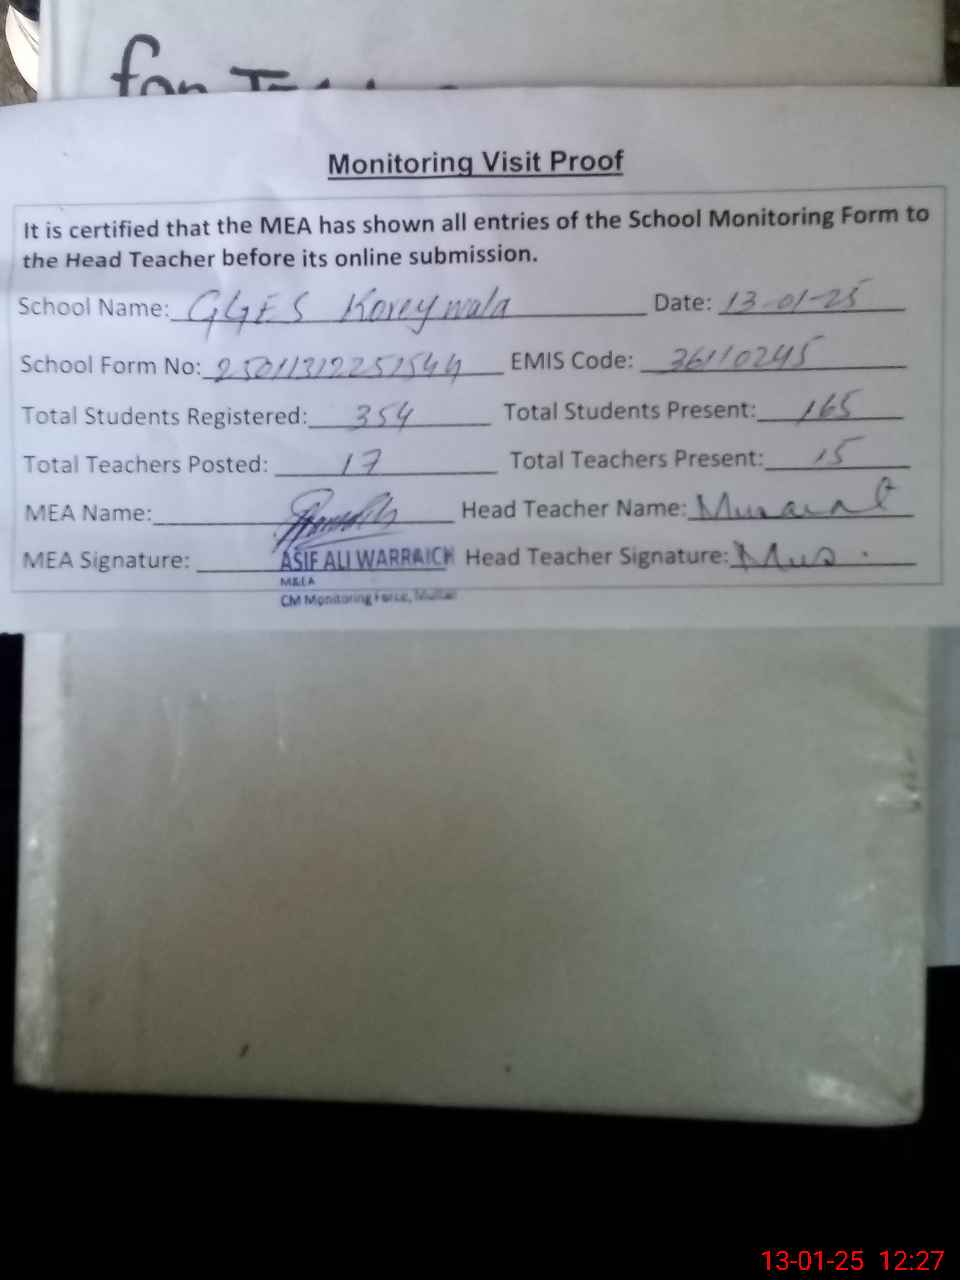 for
Monitoring Visit Proof
It is certified that the MEA has shown all entries of the School Monitoring Form to
the Head Teacher before its online submission.
School Name: GGES Koreywala Date: 13-01-25
School Form No: 25011312251544 EMIS Code: 36110245
Total Students Registered: 354 Total Students Present: 165
Total Teachers Posted: 17 Total Teachers Present: 15
MEA Name: Head Teacher Name:
MEA Signature: ASIF ALI WARRAICH Head Teacher Signature:
M&EA
CM Monitoring Force, Multan
13-01-25 12:27